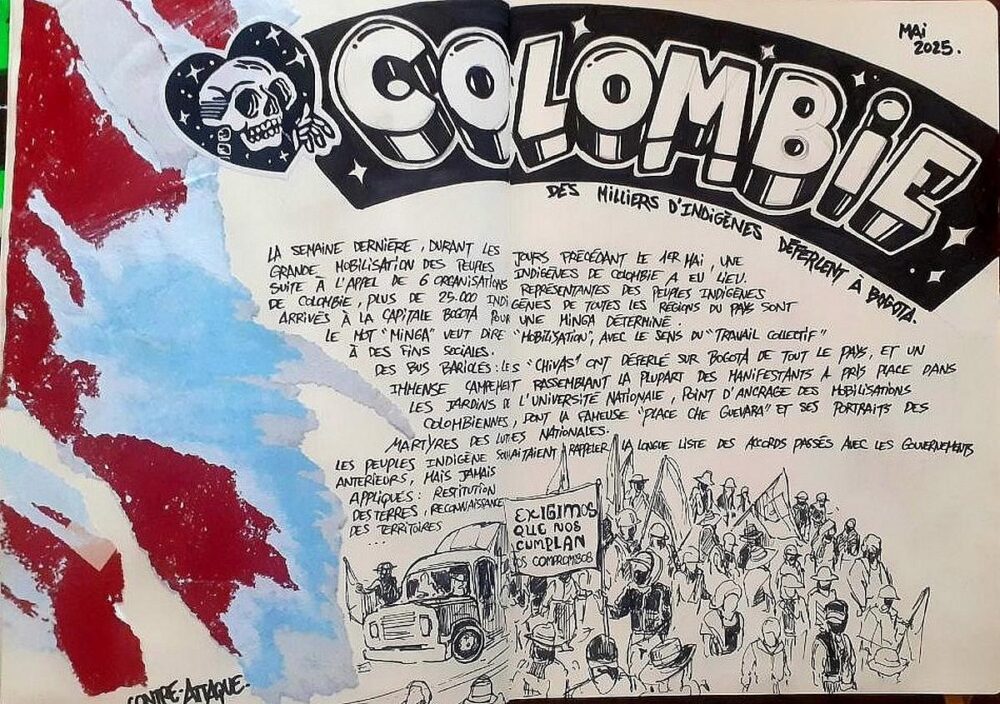 MAI
2025.
COLOMBIE
DES MILLIERS D'INDIGÈNES DÉFERLENT À BOGOTA.
LA SEMAINE DERNIÈRE, DURANT LES JOURS PRÉCÉDANT LE 1ER MAI, UNE
GRANDE MOBILISATION DES PEUPLES INDIGÈNES DE COLOMBIE A EU LIEU.
SUITE À L'APPEL DE 6 ORGANISATIONS REPRÉSENTANTES DES PEUPLES INDIGÈNES
DE COLOMBIE, PLUS DE 25.000 INDIGÈNES DE TOUTES LES RÉGIONS DU PAYS SONT
ARRIVÉS À LA CAPITALE BOGOTÀ POUR UNE MINGA DÉTERMINÉ.
LE MOT "MINGA" VEUT DIRE "MOBILISATION", AVEC LE SENS DU "TRAVAIL COLLECTIF"
À DES FINS SOCIALES.
DES BUS BARIOLÉS : LES "CHIVAS" ONT DÉFERLÉ SUR BOGOTÀ DE TOUT LE PAYS, ET UN
IMMENSE CAMPEMENT RASSEMBLANT LA PLUPART DES MANIFESTANTS A PRIS PLACE DANS
LES JARDINS DE L'UNIVERSITÉ NATIONALE, POINT D'ANCRAGE DES MOBILISATIONS
COLOMBIENNES, DONT LA FAMEUSE "PLACE CHE GUEVARA" ET SES PORTRAITS DES
MARTYRES DES LUTTES NATIONALES.
LES PEUPLES INDIGÈNE SOUHAITAIENT RAPPELER LA LONGUE LISTE DES ACCORDS PASSÉS AVEC LES GOUVERNEMENTS
ANTERIEURS, MAIS JAMAIS
APPLIQUÉS : RESTITUTION
DES TERRES, RECONNAISSANCE
DES TERRITOIRES
...
EXIGIMOS
QUE NOS
CUMPLAN
LOS COMPROMISOS
CONTRE-ATTAQUE.